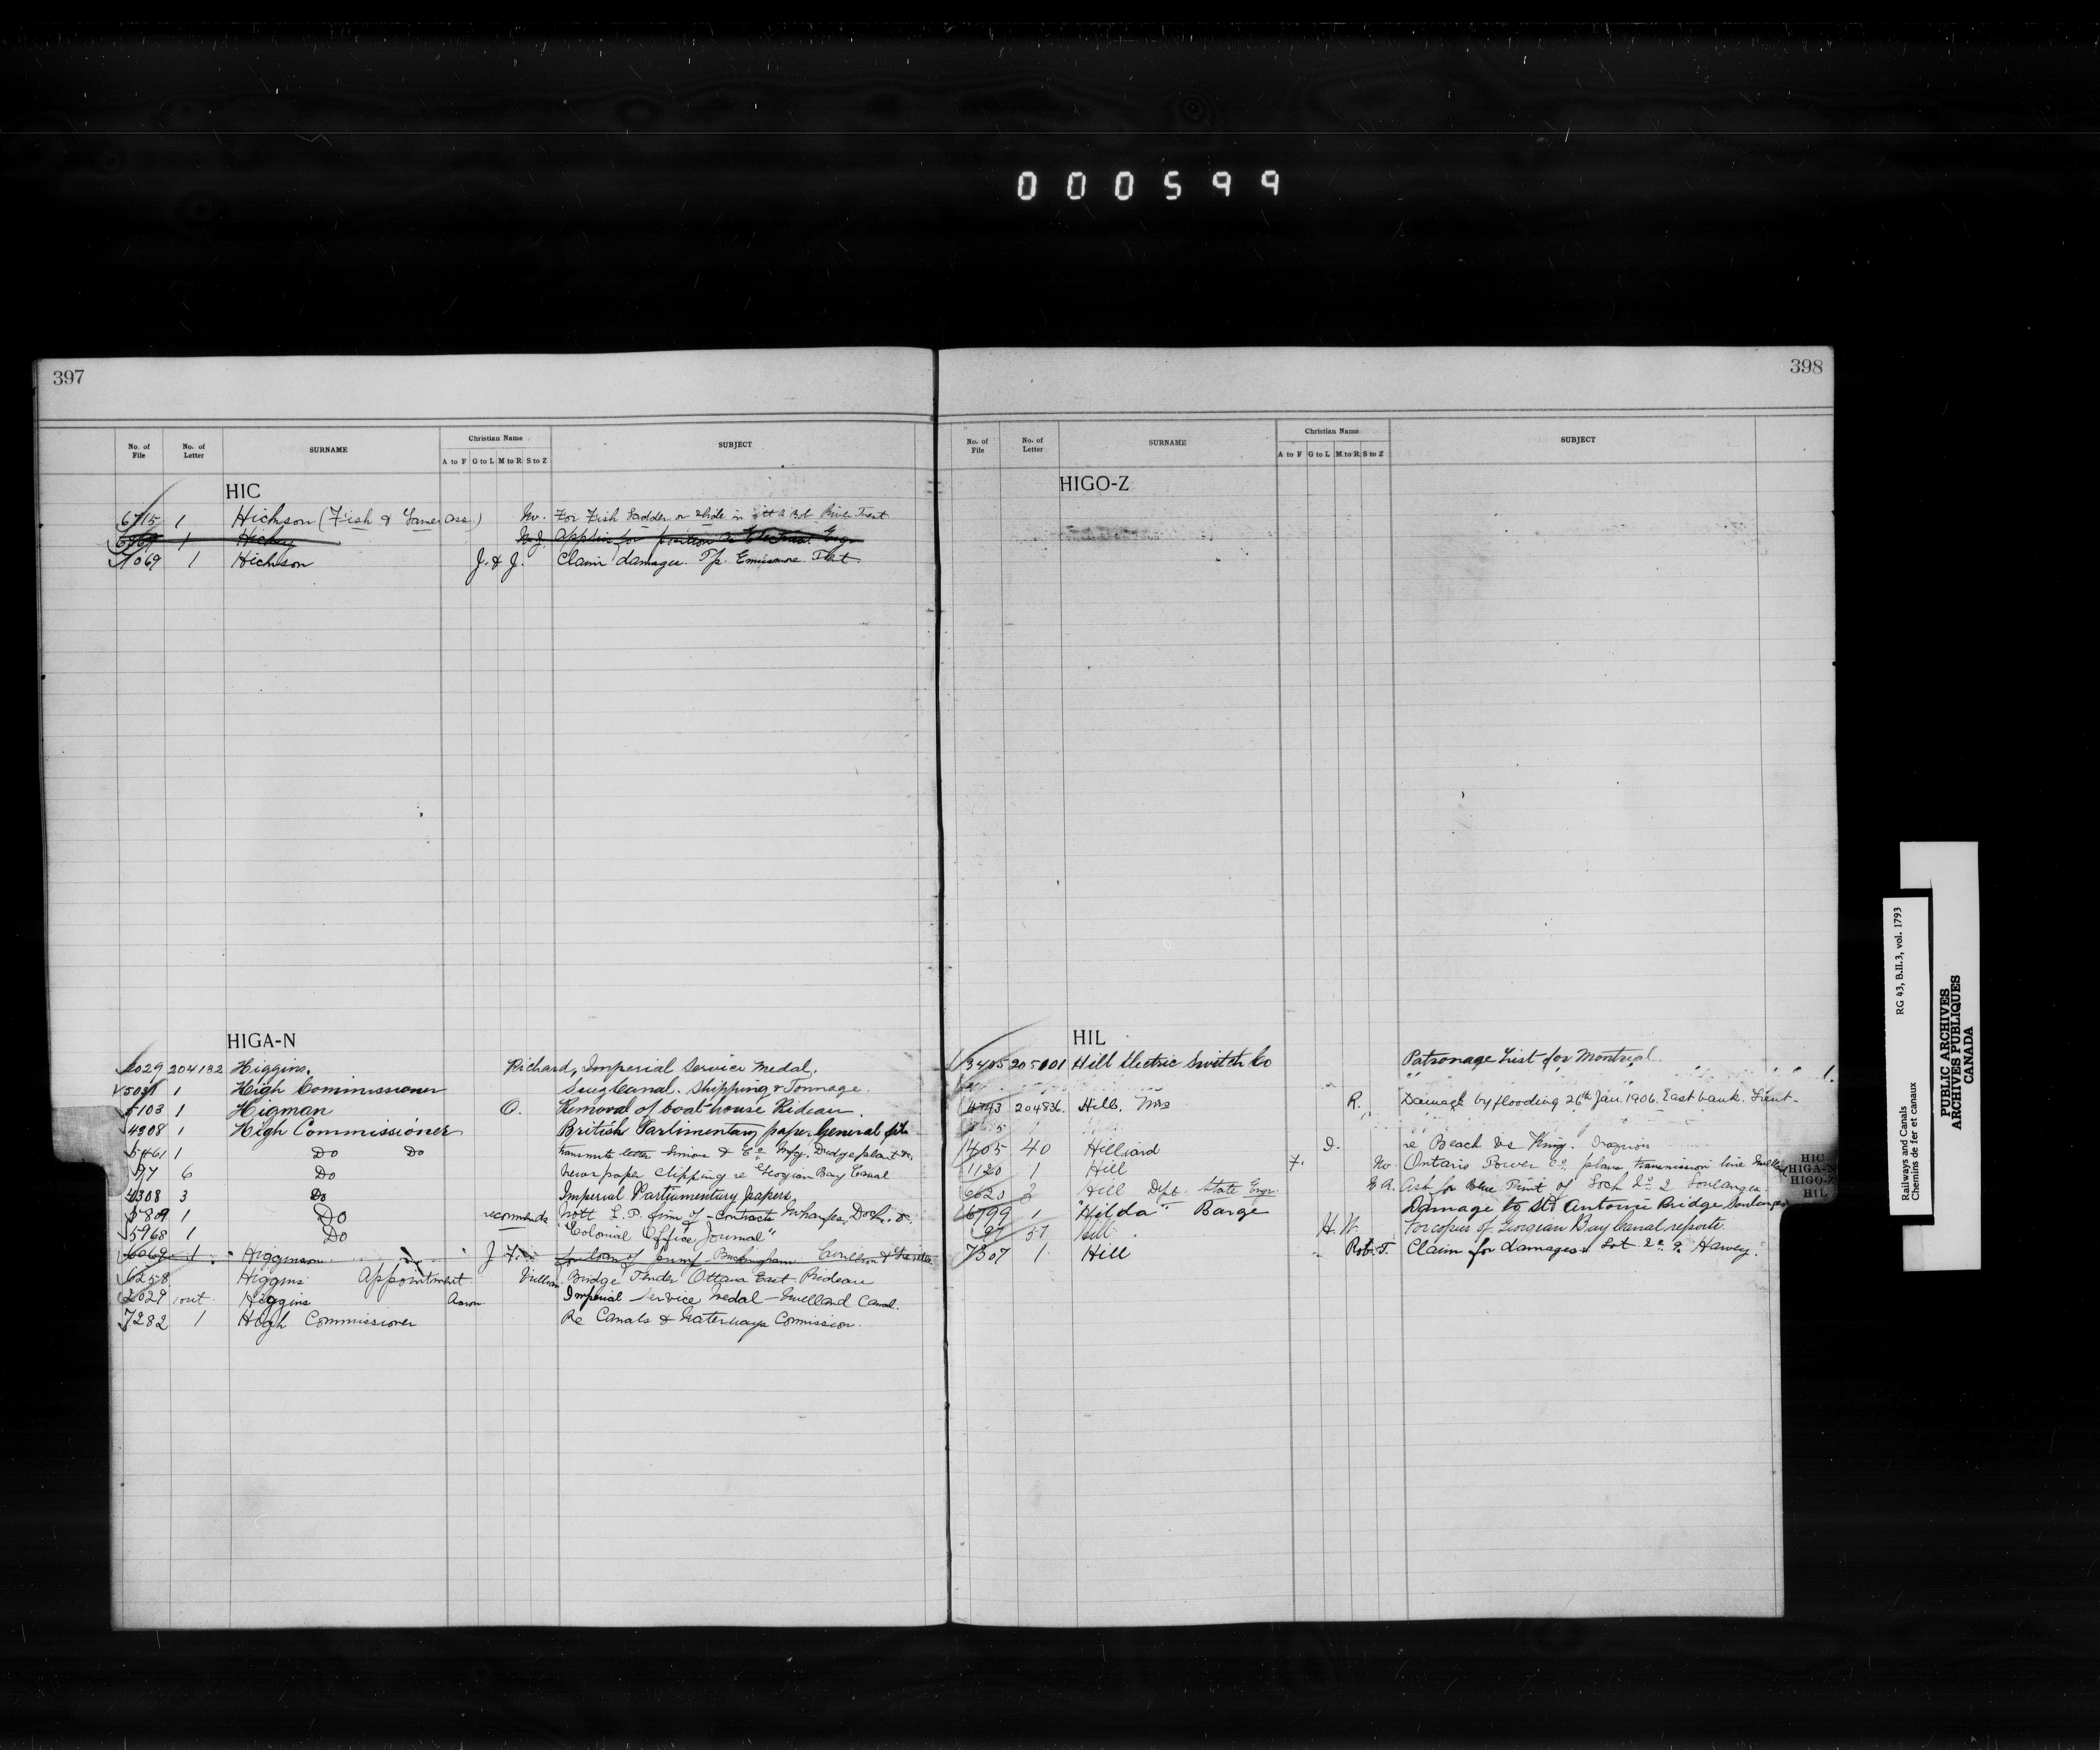 000599
397
No. of File No. of Letter SURNAME Christian Name A to F G to L M to R S to Z SUBJECT
HIC
6715 1 Hickson (Fish & Game Ass.) W. For Fish Ladder or Slide in River Trent
1 Hickey W.J. applies for position as Electrical Engr
7069 1 Hickson J. & J. Claim damages. Tp. Trent
HIGA-N
2029 204132 Higgins, Richard, Imperial Service Medal.
5031 1 High Commissioner Suez Canal. Shipping & Tonnage.
5103 1 Higman O. Removal of boat house Rideau.
4308 1 High Commissioner British Parlimentary paper General file
5461 1 Do Do transmits letter Simons & Co Mfg. Dredge plant &c.
97 6 Do Newspaper Clipping re Georgian Bay Canal
4308 3 Do Imperial Parliamentary papers,
5809 1 Do recommends Nott L. P. firm of - Contracts Wharfes, Dock. &.
5968 1 Do "Colonial Office Journal"
6069 1 Higginson J. F. for loan of Buckingham Carillon &
6258 Higgins Appointment William Bridge Tender Ottawa East Rideau
2029 out Higgins Aaron Imperial Service Medal - Welland Canal.
7282 1 High Commissioner Re Canals & Waterways Commission.
398
No. of File No. of Letter SURNAME Christian Name A to F G to L M to R S to Z SUBJECT
HIGO-Z
HIL
3405 205001 Hill Electric Switch Co Patronage List for Montreal.
" " " " " 1.
4793 204836 Hill, Mrs R. Damage by flooding 26th Jan. 1906. East bank. Trent-
1405 40 Hilliard I. re Beach vs King. Iroquois
1120 1 Hill F. W. Ontario Power Co plans transmission line Welland
6620 2 Hill Dept. State Engr. E A. Ask for Blue Print of Lock No 2 Soulanges.
6799 1 "Hilda" Barge Damage to St Antoine Bridge Soulanges
97 57 Hill H. W. For copies of Georgian Bay Canal reports.
7307 1 Hill Rob. T. Claim for damages Lot Harvey.
HIC
HIGA-N
HIGO-Z
HIL
RG 43, B.II.3, vol. 1793
Railways and Canals
Chemins de fer et canaux
PUBLIC ARCHIVES
ARCHIVES PUBLIQUES
CANADA